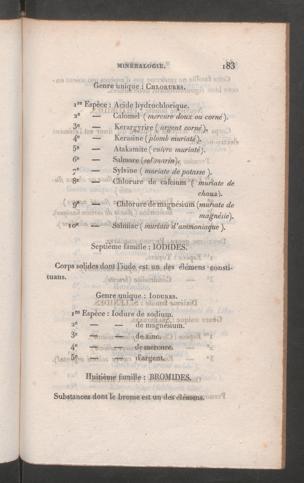 MINÉRALOGIE. 183
Genre unique : CHLORURES.
1re Espèce : Acide hydrochlorique.
2e — Calomel (mercure doux ou corné).
3e — Kerargyrire (argent corné).
4e — Kerasine (plomb muriaté).
5e — Atakamite (cuivre muriaté).
6e — Salmare (sel marin).
7e — Sylvine (muriate de potasse).
8e — Chlorure de calcium (muriate de
chaux).
9e — Chlorure de magnésium (muriate de
magnésie).
10e — Salmiac (muriate d'ammoniaque).
Septième famille : IODIDES.
Corps solides dont l'iode est un des élémens consti-
tuans.
Genre unique : IODURES.
1re Espèce : Iodure de sodium.
2e — — de magnésium.
3e — — de zinc.
4e — — de mercure.
5e — — d'argent.
Huitième famille : BROMIDES.
Substances dont le brome est un des élémens.